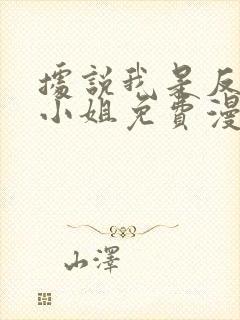 據說我是反
小姐免費漫
山澤